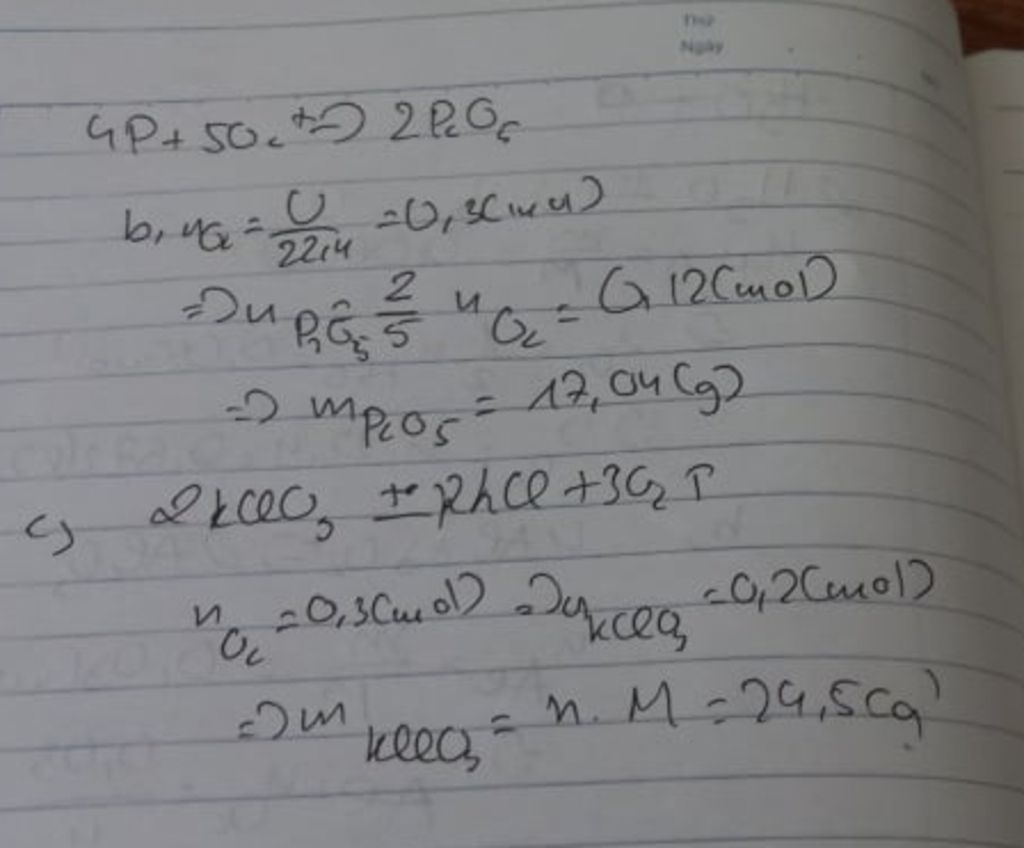 Thứ
Ngày
4P + 5O₂ t° => 2P₂O₅
b, nO₂ = V/22,4 = 0,3(mol)
=> nP₂O₅ = 2/5 nO₂ = 0,12(mol)
=> mP₂O₅ = 17,04(g)
c) 2KClO₃ t° 2KCl + 3O₂ ↑
nO₂ = 0,3(mol) => nKClO₃ = 0,2(mol)
=> mKClO₃ = n. M = 24,5(g)